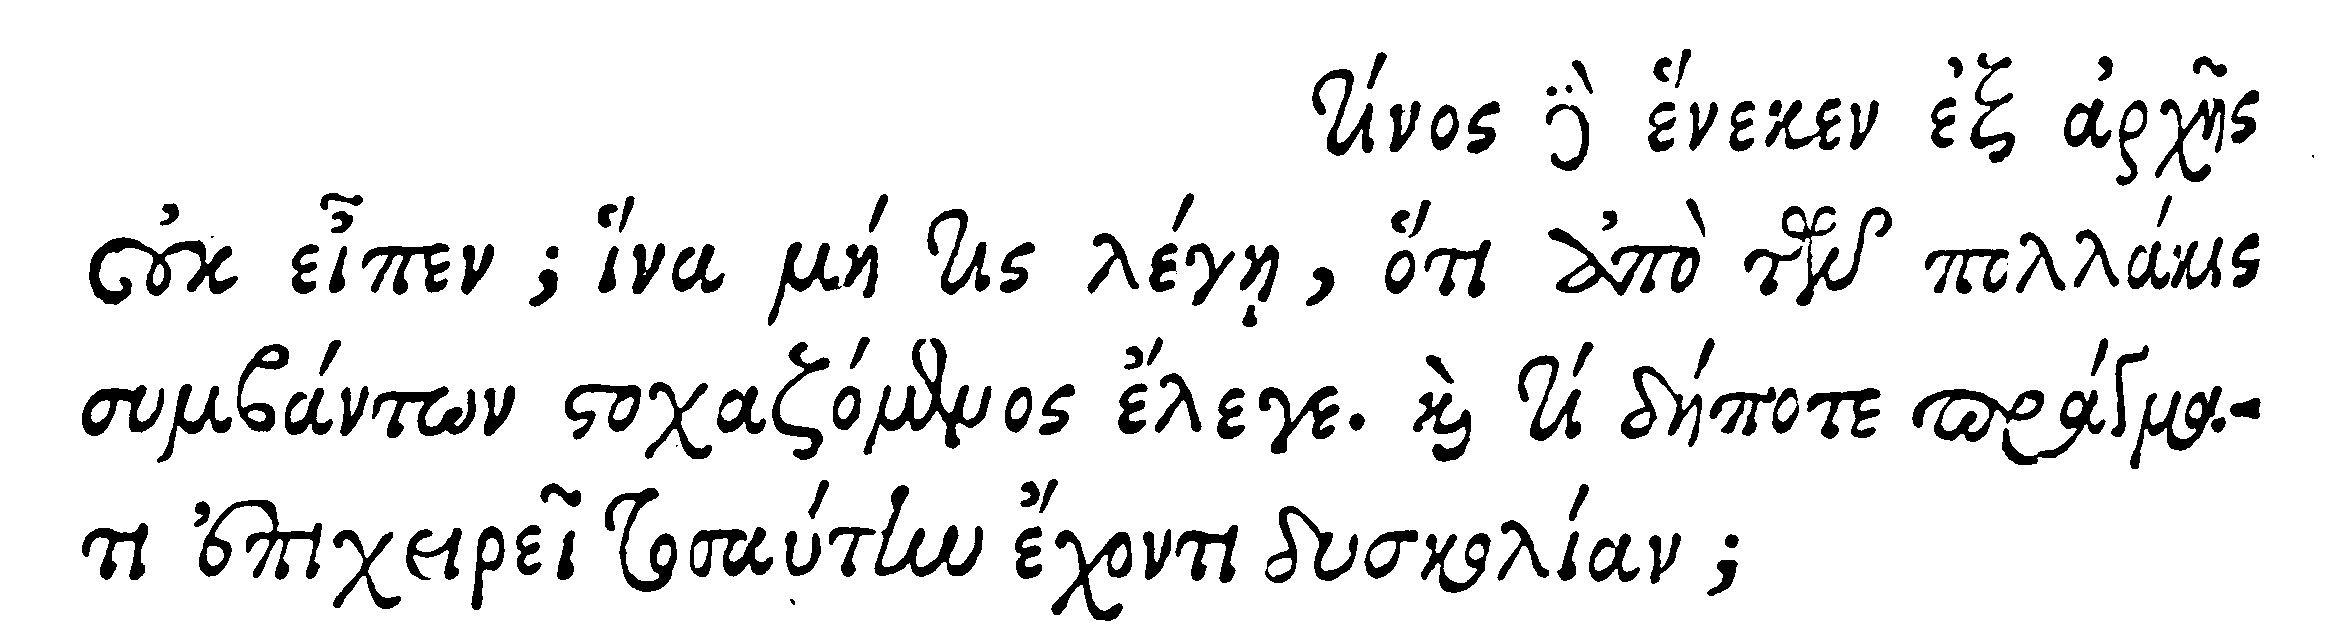 τίνος δὲ ἕνεκεν ἐξ ἀρχῆς
οὐκ εἶπεν; ἵνα μή τις λέγῃ, ὅτι ἀπὸ τῶν πολλάκις
συμβάντων στοχαζόμενος ἔλεγε. καὶ τί δήποτε πράγμα-
τι ἐπιχειρεῖ τοσαύτην ἔχοντι δυσκολίαν;